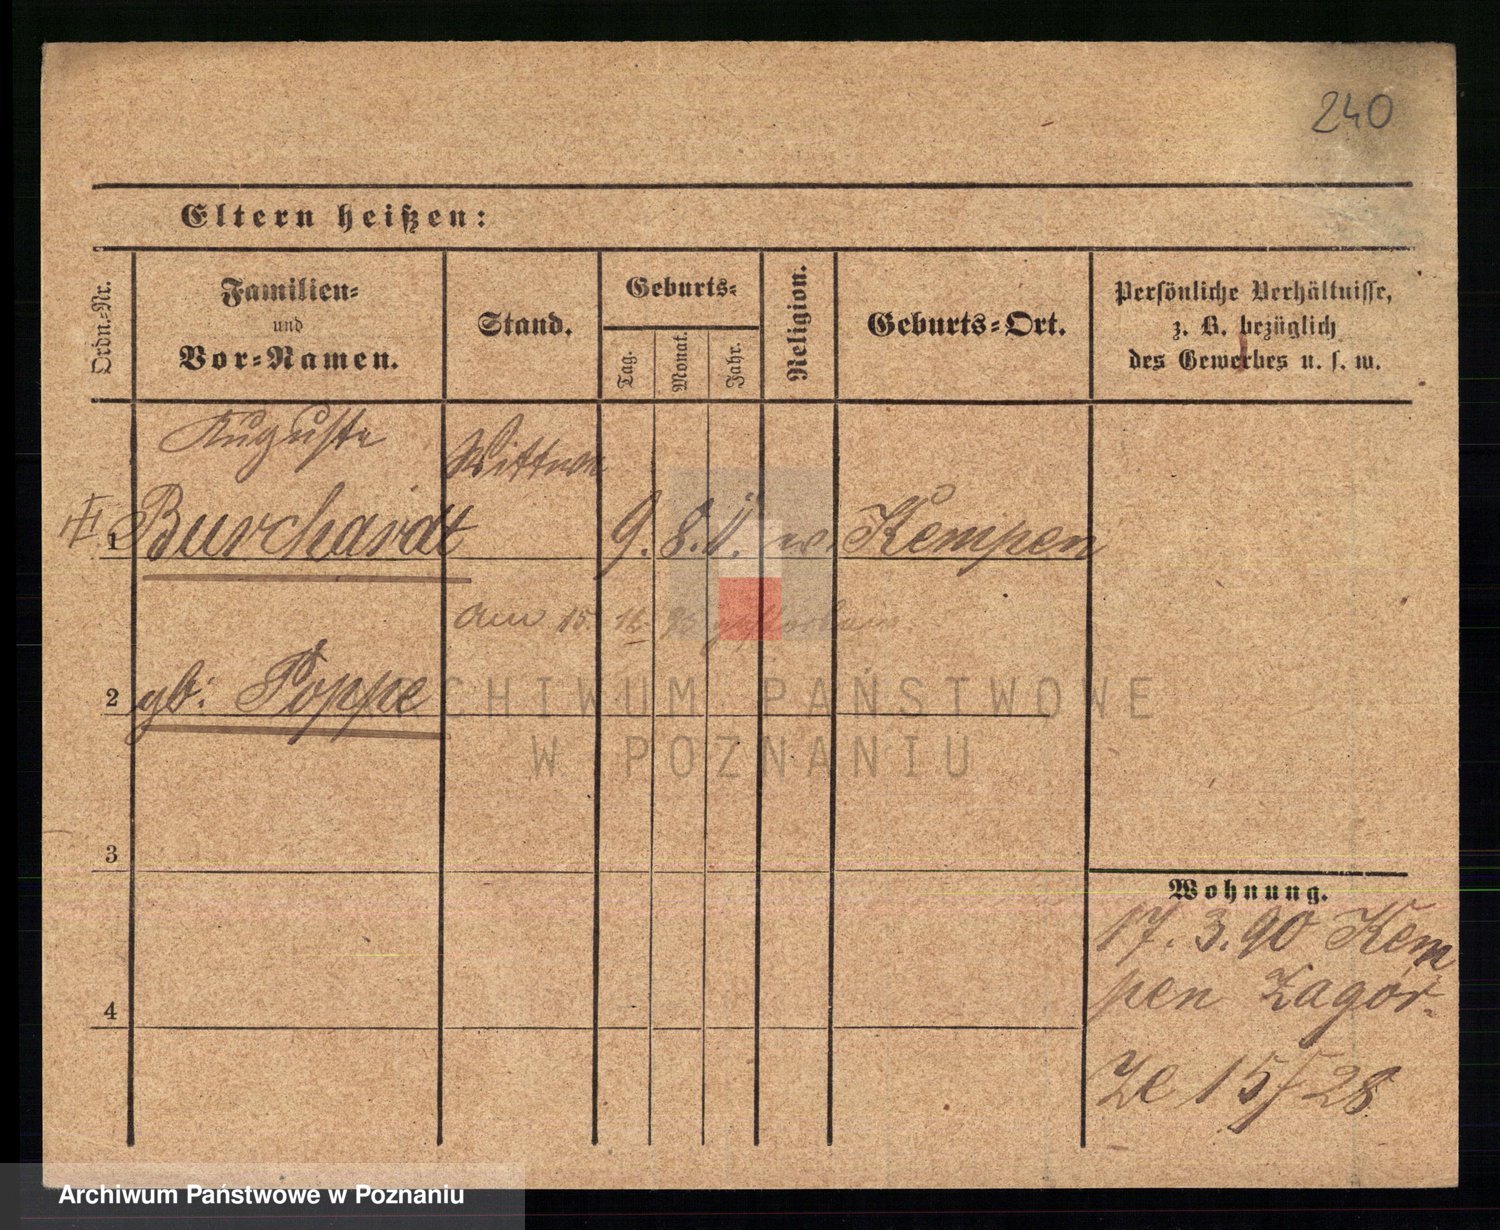 240
Eltern heißen:
Ordn.-Nr.
Familien-
und
Vor-Namen.
Stand.
Geburts-
Tag.
Monat.
Jahr.
Religion.
Geburts-Ort.
Persönliche Verhältnisse,
z. B. bezüglich
des Gewerbes u. s. w.
Auguste
Wittwe
1 Burchardt 9. 8. Kempen
am 15. gestorben
2 gb: Poppe
ARCHIWUM PAŃSTWOWE
W POZNANIU
3
Wohnung.
17. 3. 90 Kem
pen Zagór-
4
ze 15/28
Archiwum Państwowe w Poznaniu